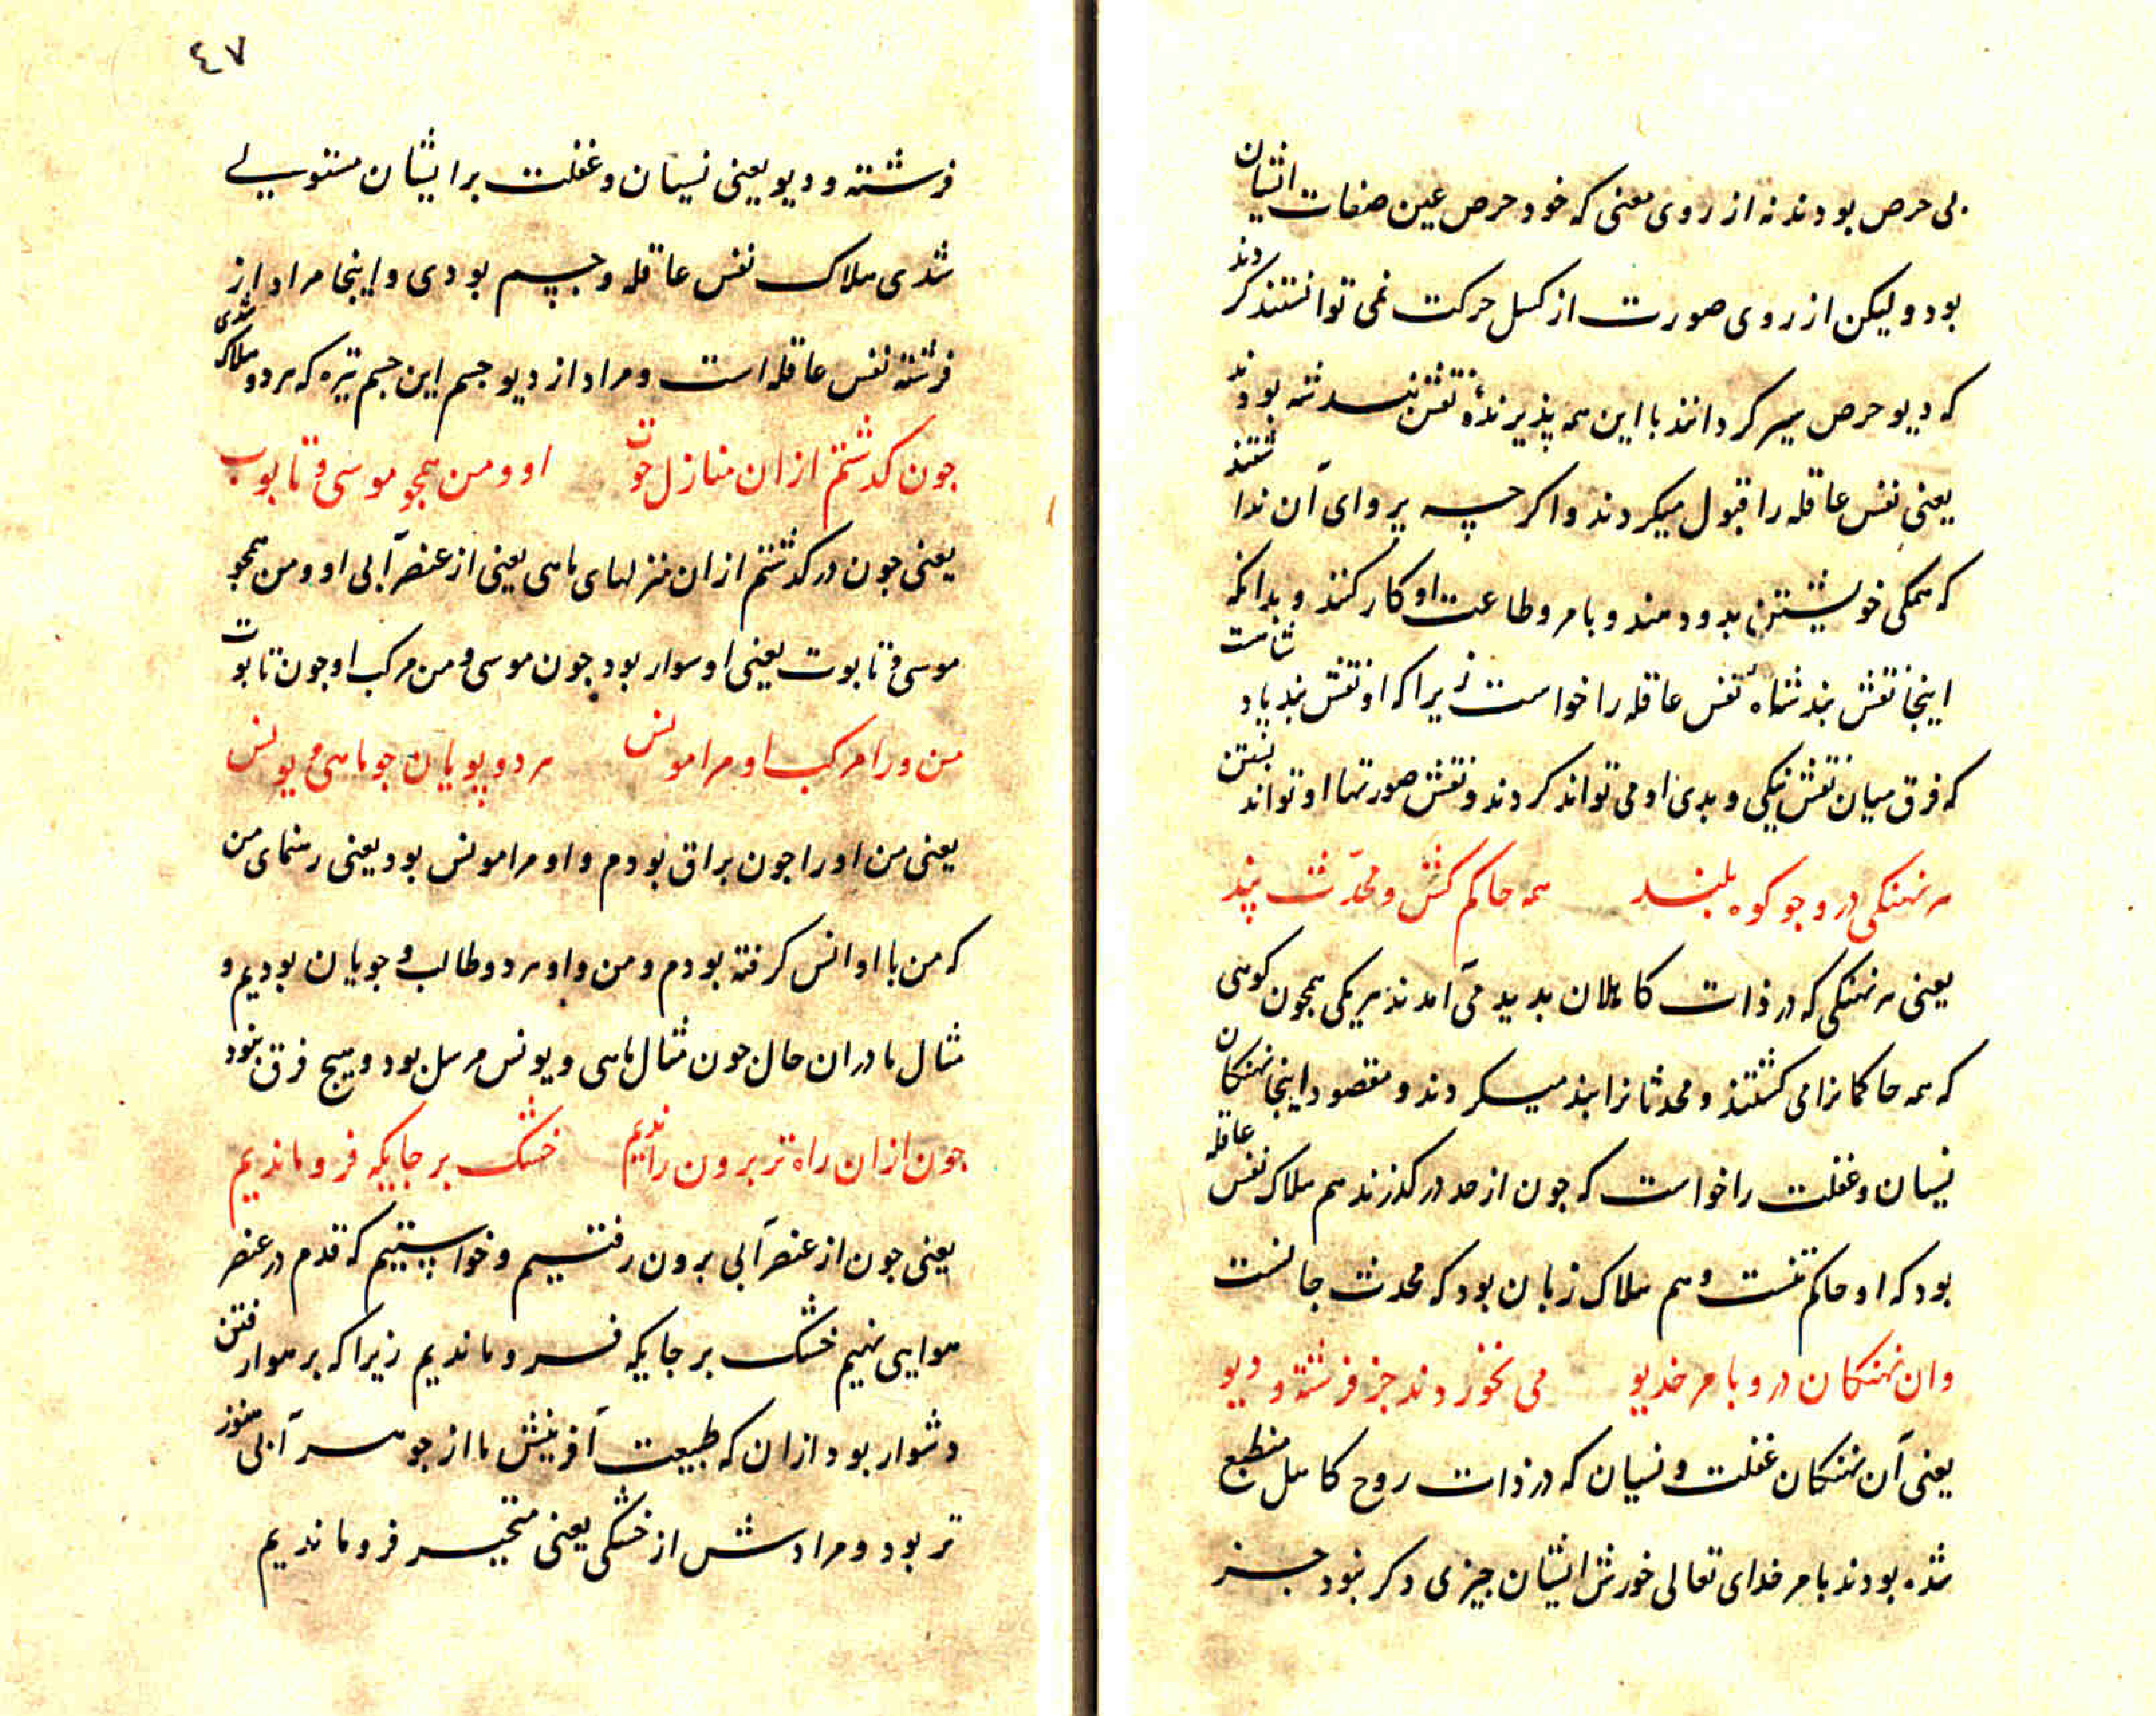 بی حرص بودند نه از روی معنی که خود حرص عین صفات انشیان
بود ولیکن از روی صورت از کسل حرکت نمی توانستند کردند
که دیو حرص سر کردانند با این همه پذیرندهٔ نقش شه بودند
یعنی نفس عاقله را قبول میکردند و اکرچه پروای آن نداشتند
که همکی خویشتن بدو دهند و بامر و طاعت او کار کنند و بدانکه
اینجا نقش بند شاه نفس عاقله را خواست زیرا که او نقش بند
که فرق میان نقش نیکی و بدی او می تواند کردند و نقش صورتها او تواند بستن
هر نهنکی درو جو کوه بلند همه حاکم کش و محدّث بند
یعنی هر نهنکی که در ذات کاهلان بدید می آمدند هر یکی همجون کوهی
که همه حاکمانرا می کشتند و محدثانرا بند میکردند و مقصود اینجا نهنکان
نسیان و غفلت را خواست که جون از حد درکذرند هم هلاک نفس عاقله
بود که او حاکم تنست و هم هلاک زبان بود که محدث جانست
وان نهنکان درو بامر خدیو می نخوردند جز فرشته و دیو
یعنی آن نهنکان غفلت و نسیان که در ذات روح کاهل منطبع
شده بودند بامر خدای تعالی خورش ایشان جیزی دکر نبود جز
٤٧
فرشته و دیو یعنی نسیان و غفلت بر ایشان مستولی
شدی هلاک نفس عاقله و جسم بودی و اینجا مراد از
فرشته نفس عاقله است و مراد از دیو جسم این جسم تیره که هر دو هلاک شدی
جون کذشتم ازان منازل حوت او و من همجو موسی و تابوت
یعنی جون درکذشتم ازان منزلهای ماهی یعنی از عنصر آبی او و من همجو
موسی و تابوت یعنی او سوار بود جون موسی و من مرکب او جون تابوت
من ورا مرکب او مرا مونس هر دو پویان جو ماهی و یونس
یعنی من او را جون براق بودم و او مرا مونس بود یعنی رهنمای من
که من با او انس کرفته بودم و من و او هر دو طالب و جویان بودیم و
مثال ما دران حال جون مثال ماهی و یونس مرسل بود و هیج فرق نبود
جون ازان راه تر برون راندیم خشک بر جایکه فرو ماندیم
یعنی جون از عنصر آبی برون رفتیم و خواستیم که قدم در عنصر
هوایی نهیم خشک بر جایکه فرو ماندیم زیرا که بر هوا رفتن
دشوار بود ازان که طبیعت آفرینش ما از جوهر آبی هنوز
تر بود و مرادش از خشکی یعنی متحیر فرو ماندیم